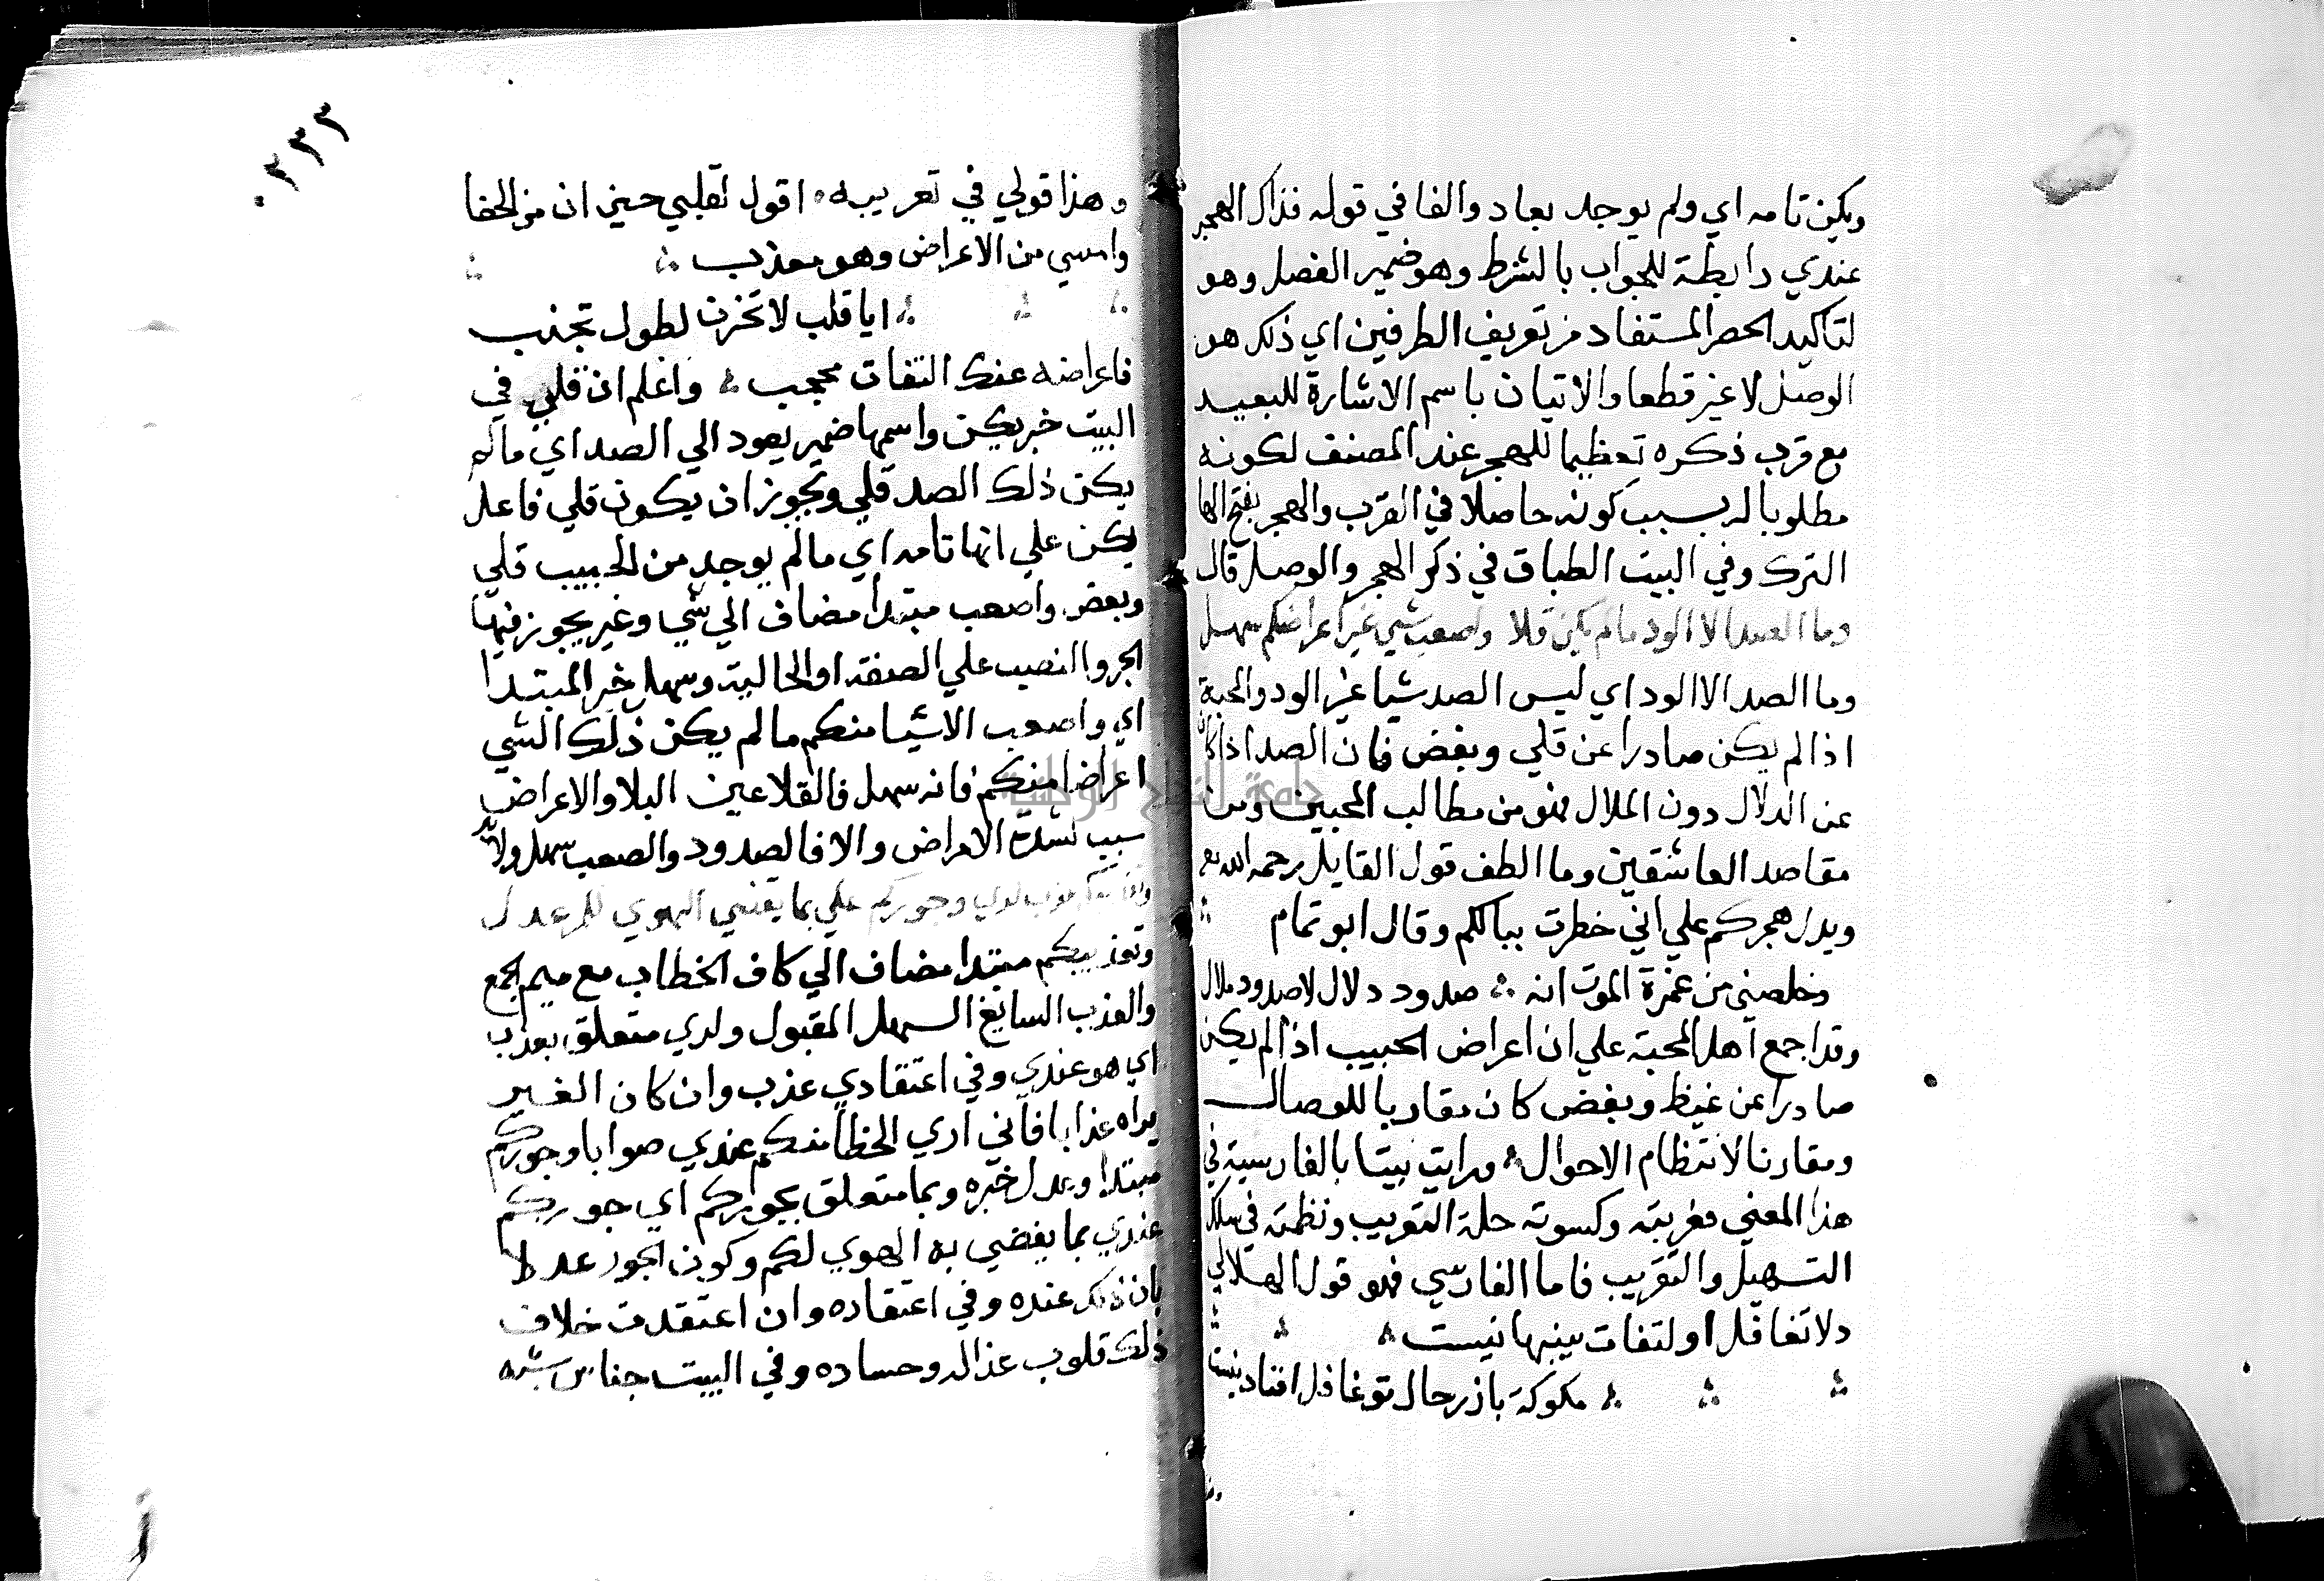 ويكن تامه اي ولم يوجد بعاد والفا في قوله فذاك الهجر
عندي رابطة للجواب بالشرط وهو ضمير الفصل وهو
لتاكيد الحصر المستفاد من تعريف الطرفين اي ذلك هو
الوصل لا غير قطعا والاتيان باسم الاشارة للبعيد
مع قرب ذكره تعظيما للهجر عند المصنف لكونه
مطلوبا له بسبب كونه حاصلا في القرب والهجر بفتح الها
الترك وفي البيت الطباق في ذكر الهجر والوصل قال
وما الصد الا الود ما لم يكن قلا واصعب شي غير اعراضكم سهل
وما الصد الا الود اي ليس الصد شيا غير الود والمحبة
اذا لم يكن صادرا عن قلي وبغض فان الصد اذا كان
عن الدلال دون الملال فهو من مطالب المحبين ومن
مقاصد العاشقين وما الطف قول القايل رحمه الله تع
ويدل هجركم علي اني خطرت ببالكم وقال ابو تمام
وخلصني من غمرة الموت انه صدود دلال لا صدود ملال
وقد اجمع اهل المحبة علي ان اعراض الحبيب اذا لم يكن
صادرا عن غيظ وبغض كان مقاربا للوصال
ومقارنا لانتظام الاحوال ورايت بيتا بالفارسية في
هذا المعني فعربته وكسوته حلة التعريب ونظمته في سلك
التسهيل والتقريب فاما الفارسي فهو قول الهلالي
دلا تغافل او لتفات ينبها نيست
مكوكه باز زحال تو غافل افتاد نيست
٢٣٣
وهذا قولي في تعريبه اقول لقلبي حين ان من الجفا
وامسي من الاعراض وهو معذب
ايا قلب لا تحزن لطول تجنب
فاعراضه عنك التفات محجب واعلم ان قلي في
البيت خبر يكن واسمها ضمير يعود الي الصد اي ما لم
يكن ذلك الصد قلي ويجوز ان يكون قلي فاعل
يكن علي انها تامه اي ما لم يوجد من الحبيب قلي
وبغض واصعب مبتدا مضاف الي شي وغير يجوز فيها
الجر والنصب علي الصفة او الحالية وسهل خبر المبتدا
اي واصعب الاشيا منكم ما لم يكن ذلك الشي
اعراضا منكم فانه سهل فالقلا عين البلا والاعراض
سبب لشدة الامراض والا فالصدود والصعب سهل ولا
وتعذيبكم عذب لدي وجوركم علي بما يقضي الهوي لكم عدل
وتعذيبكم مبتدا مضاف الي كاف الخطاب مع ميم الجمع
والعذب السايغ السهل المقبول ولدي متعلق بعذب
اي هو عندي وفي اعتقادي عذب وان كان الغير
يراه عذابا فاني اري الخطا منكم عندي صوابا وجوركم
مبتدا وعدل خبره وبما متعلق بجوركم اي جوركم
عندي بما يقضي به الهوي لكم وكون الجور عدلا
بان ذلك عنده وفي اعتقاده وان اعتقدت خلاف
ذلك قلوب عذاله وحساده وفي البيت جناس شبه